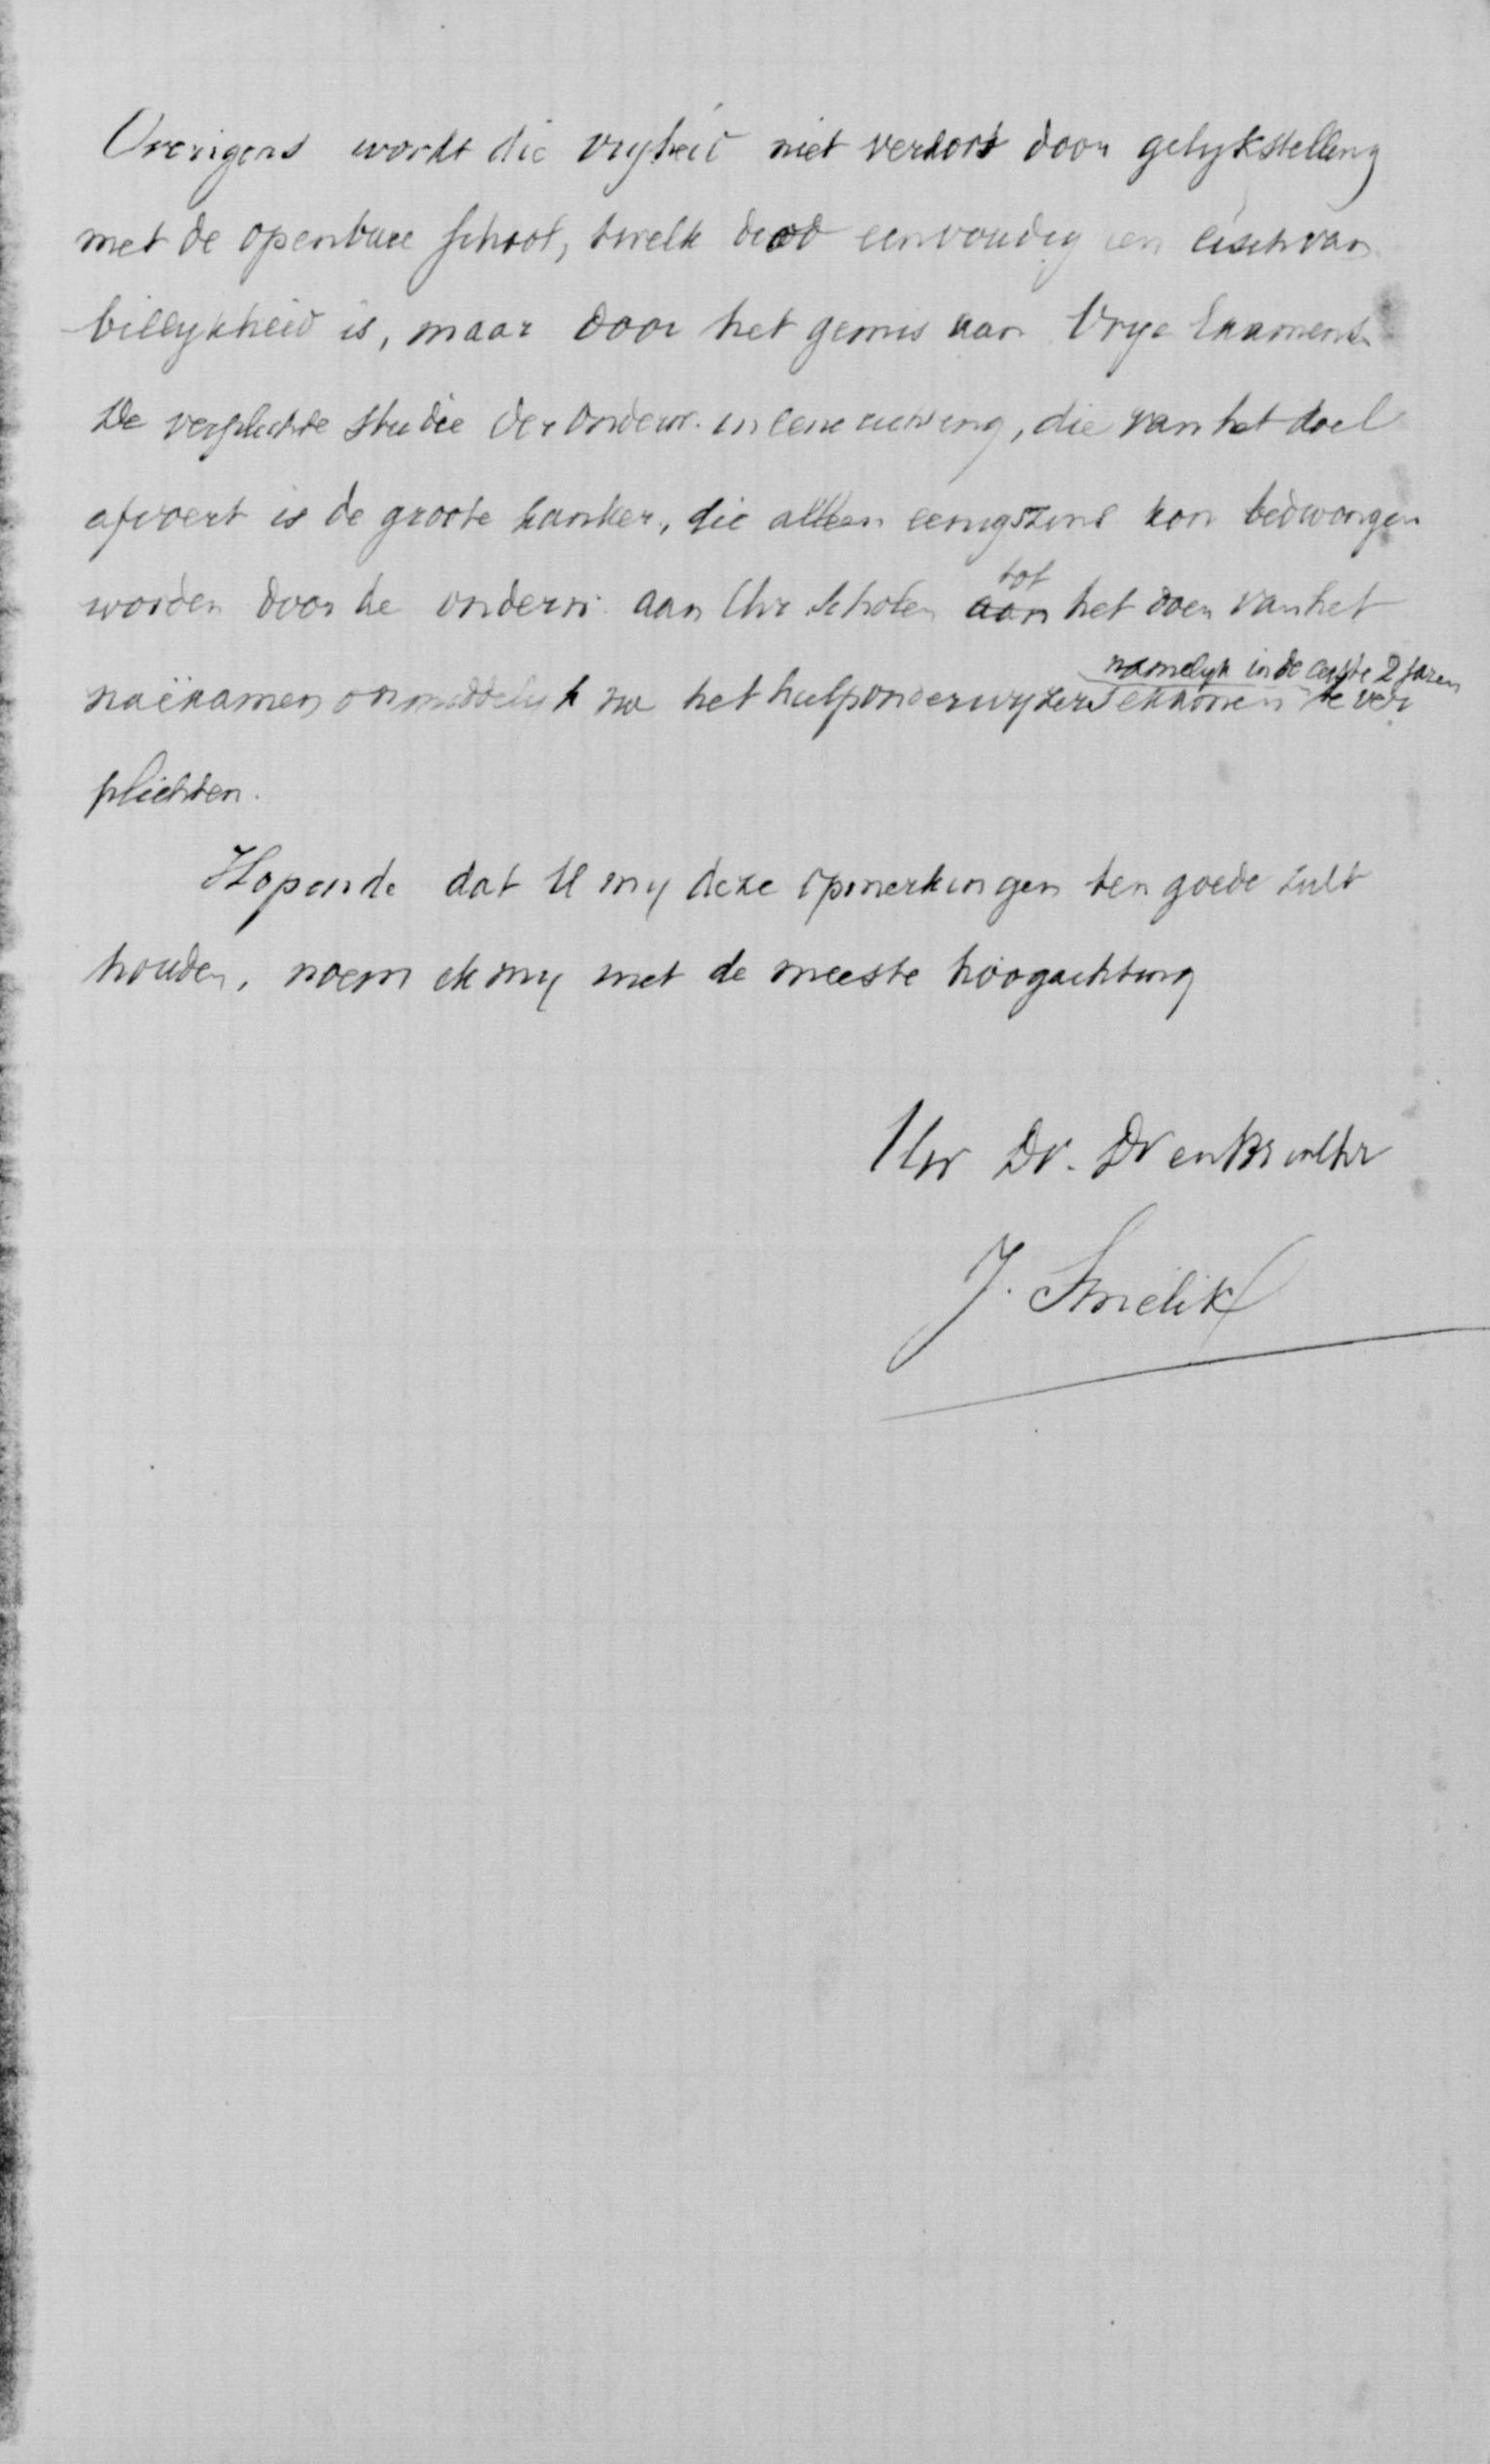 Overigens wordt die vryheid niet verkort door gelykstelling
met de openbare school, twelk dood eenvoudig een eisch van
billykheid is, maar door het gemis aan Vrye Examens.
De verplichte studie der onderw. in eene richting, die van het doel
afvoert is de groote kanker, die alleen eenigszins kon bedwongen
worden door de onderw. aan Chr Scholen aan tot het doen van het
naëxamen onmiddelyk na het hulponderwyzers examen namelyk in de eerste 2 jaren te ver
plichten.
Hopende dat U my deze opmerkingen ten goede zult
houden, noem ik my met de meeste hoogachting
Uw Dv. Dr en Br in Chr
J. Smelik